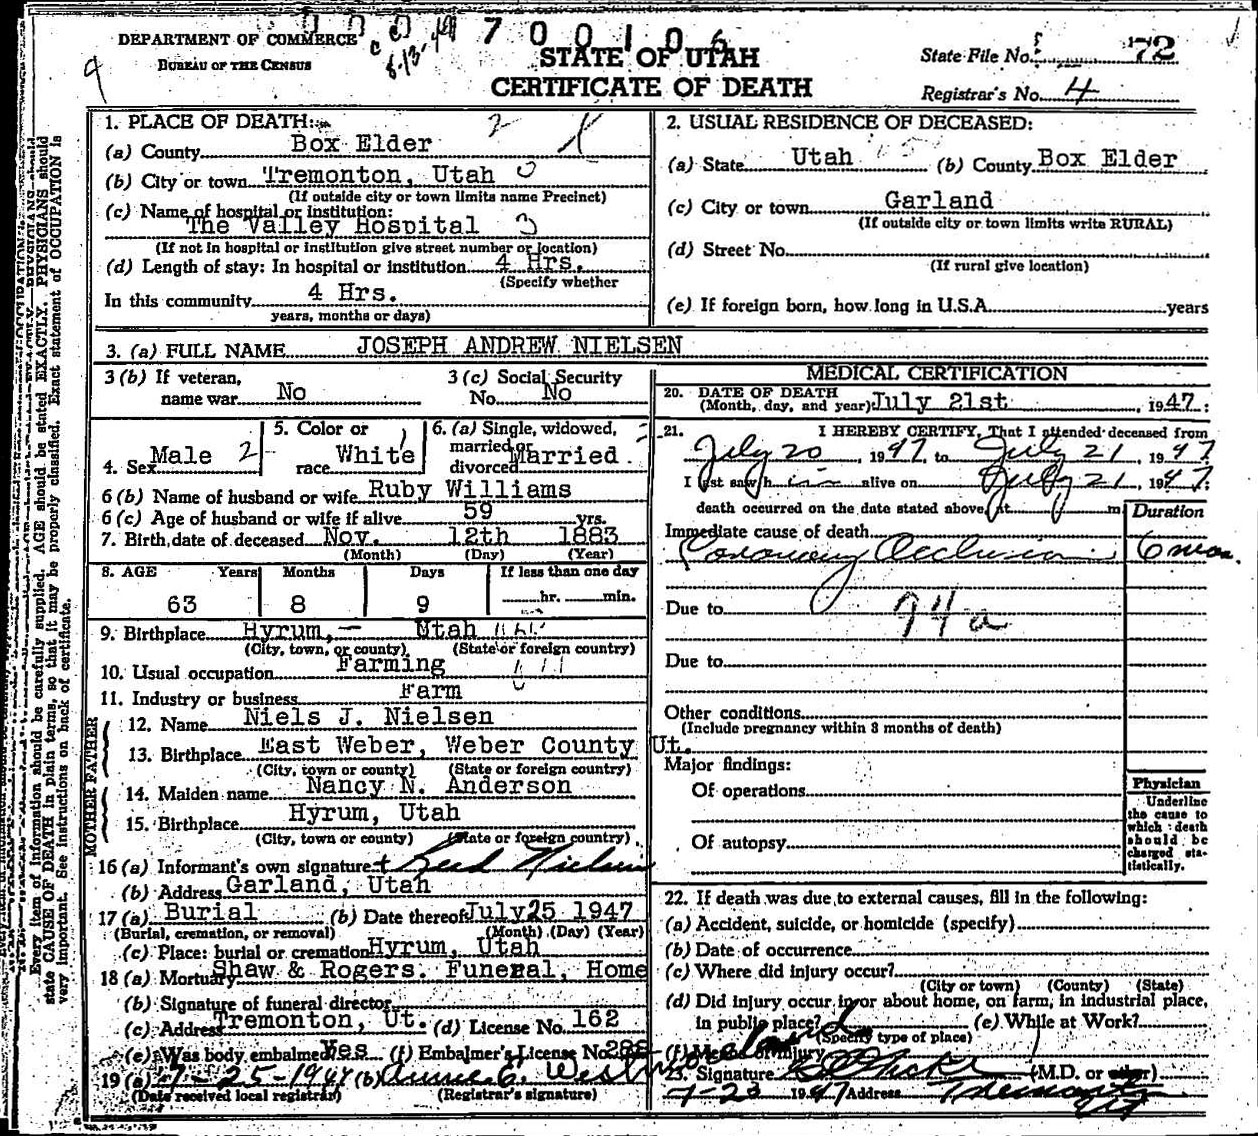 DEPARTMENT OF COMMERCE
BUREAU OF THE CENSUS
700106
STATE OF UTAH
CERTIFICATE OF DEATH
State File No. 72
Registrar's No. 4
1. PLACE OF DEATH:
(a) County Box Elder
(b) City or town Tremonton, Utah
(If outside city or town limits name Precinct)
(c) Name of hospital or institution:
The Valley Hospital
(If not in hospital or institution give street number or location)
(d) Length of stay: In hospital or institution 4 Hrs.
(Specify whether
In this community 4 Hrs.
years, months or days)
2. USUAL RESIDENCE OF DECEASED:
(a) State Utah (b) County Box Elder
(c) City or town Garland
(If outside city or town limits write RURAL)
(d) Street No.
(If rural give location)
(e) If foreign born, how long in U.S.A. years
3. (a) FULL NAME JOSEPH ANDREW NIELSEN
3 (b) If veteran, name war No
3 (c) Social Security No. No
4. Sex Male
5. Color or race White
6. (a) Single, widowed, married or divorced Married
6 (b) Name of husband or wife Ruby Williams
6 (c) Age of husband or wife if alive 59 yrs.
7. Birth date of deceased Nov. 12th 1883
(Month) (Day) (Year)
8. AGE Years Months Days If less than one day
63 8 9 hr. min.
9. Birthplace Hyrum, Utah
(City, town, or county) (State or foreign country)
10. Usual occupation Farming
11. Industry or business Farm
FATHER
12. Name Niels J. Nielsen
13. Birthplace East Weber, Weber County Ut.
(City, town or county) (State or foreign country)
MOTHER
14. Maiden name Nancy N. Anderson
15. Birthplace Hyrum, Utah
(City, town or county) (State or foreign country)
16 (a) Informant's own signature Reed Nielsen
(b) Address Garland, Utah
17 (a) Burial (b) Date thereof July 25 1947
(Burial, cremation, or removal) (Month) (Day) (Year)
(c) Place: burial or cremation Hyrum, Utah
18 (a) Mortuary Shaw & Rogers. Funeral, Home
(b) Signature of funeral director
(c) Address Tremonton, Ut. (d) License No. 162
(e) Was body embalmed Yes (f) Embalmer's License No.
19 (a) 7-25-1947 (b)
(Date received local registrar) (Registrar's signature)
MEDICAL CERTIFICATION
20. DATE OF DEATH
(Month, day, and year) July 21st, 1947
21. I HEREBY CERTIFY, That I attended deceased from
July 20, 1947, to July 21, 1947
I last saw him alive on July 21, 1947
death occurred on the date stated above, at m
Duration
Immediate cause of death
Coronary Occlusion 6 mos.
Due to 94a
Due to
Other conditions
(Include pregnancy within 3 months of death)
Major findings:
Of operations
Of autopsy
Physician
Underline
the cause to
which death
should be
charged sta-
tistically.
22. If death was due to external causes, fill in the following:
(a) Accident, suicide, or homicide (specify)
(b) Date of occurrence
(c) Where did injury occur?
(City or town) (County) (State)
(d) Did injury occur in or about home, on farm, in industrial place,
in public place? (e) While at Work?
(Specify type of place)
(f) Means of injury
23. Signature (M.D. or other)
7-23 1947 Address Tremonton
Every item of information should be carefully supplied. AGE should be stated EXACTLY. PHYSICIANS should
state CAUSE OF DEATH in plain terms, so that it may be properly classified. Exact statement of OCCUPATION is
very important. See instructions on back of certificate.